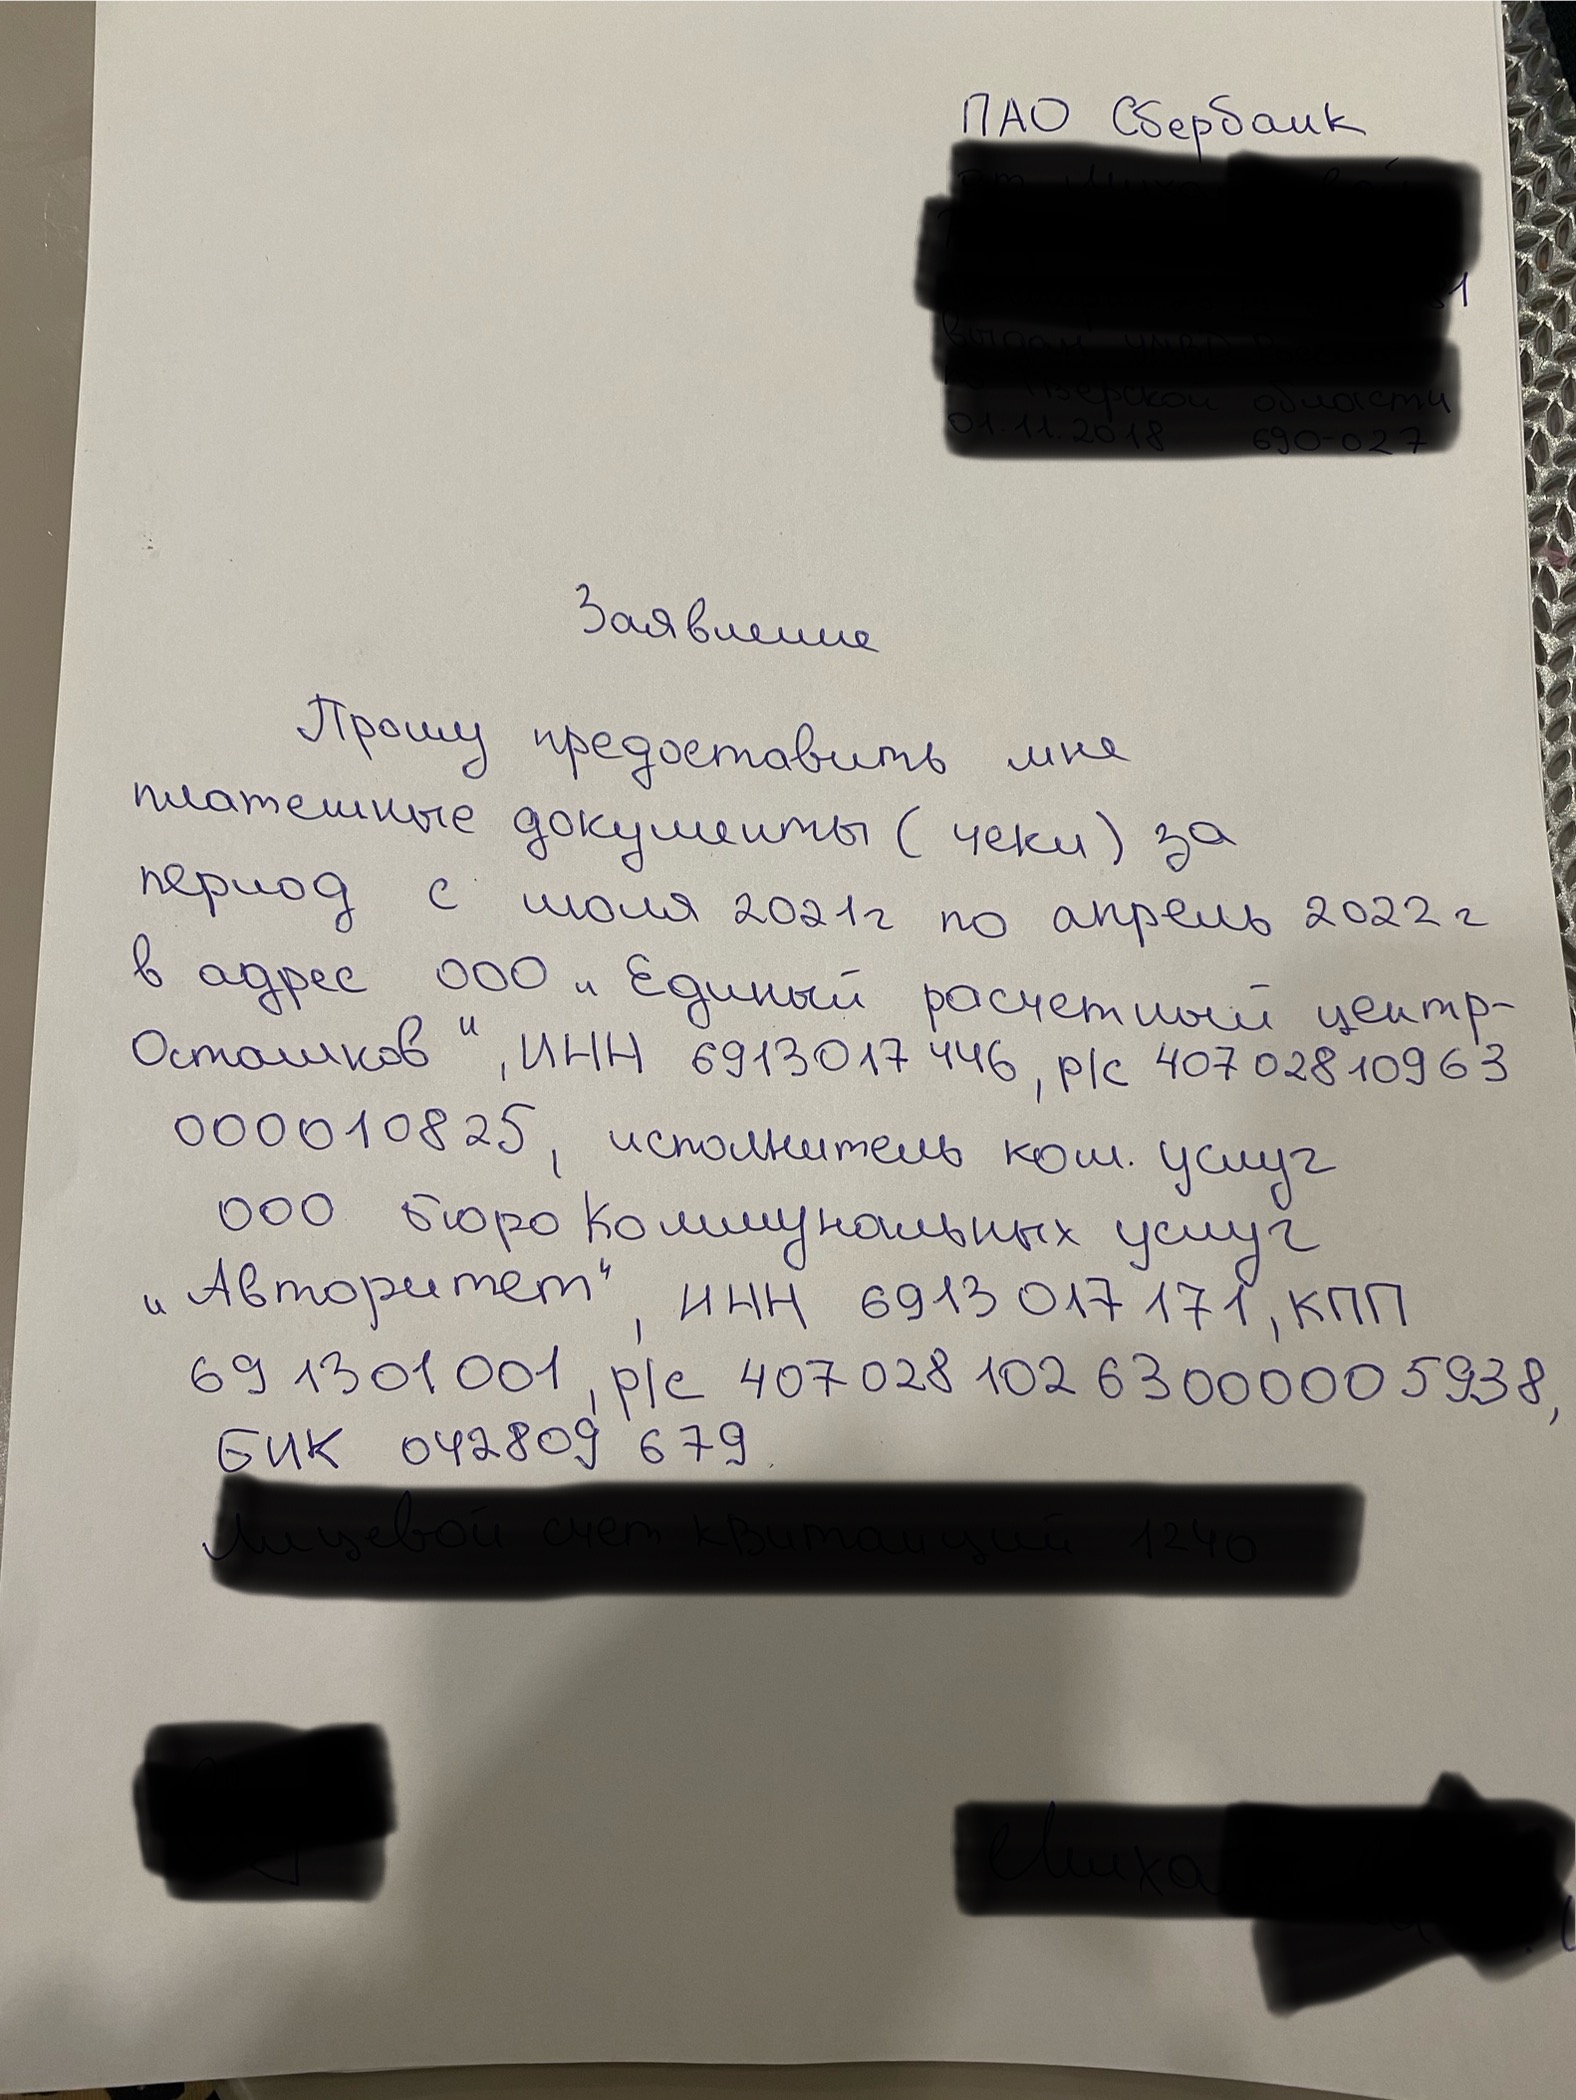 ПАО Сбербанк
Заявление
Прошу предоставить мне
платежные документы (чеки) за
период с июля 2021г по апрель 2022г
в адрес ООО „Единый расчетный центр-
Осташков“, ИНН 6913017446, р/с 40702810963
000010825, исполнитель ком. услуг
ООО Бюро Коммунальных услуг
„Авторитет“, ИНН 6913017171, КПП
691301001, р/с 40702810263000005938,
БИК 042809679.